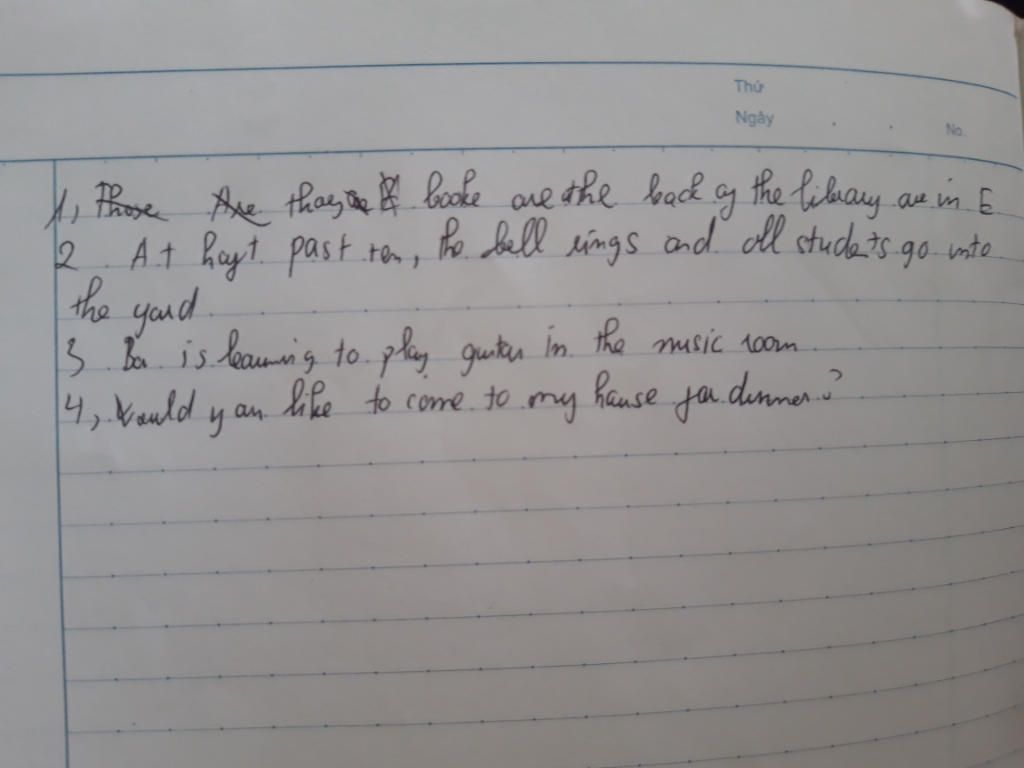 Thứ
Ngày
No.
1, Those Are thay books are the back of the library are in E
2 At hayt past ten, the bell rings and all students go into
the yard
3 Ba is learning to play guitar in the music room
4, Would you like to come to my house for dinner?